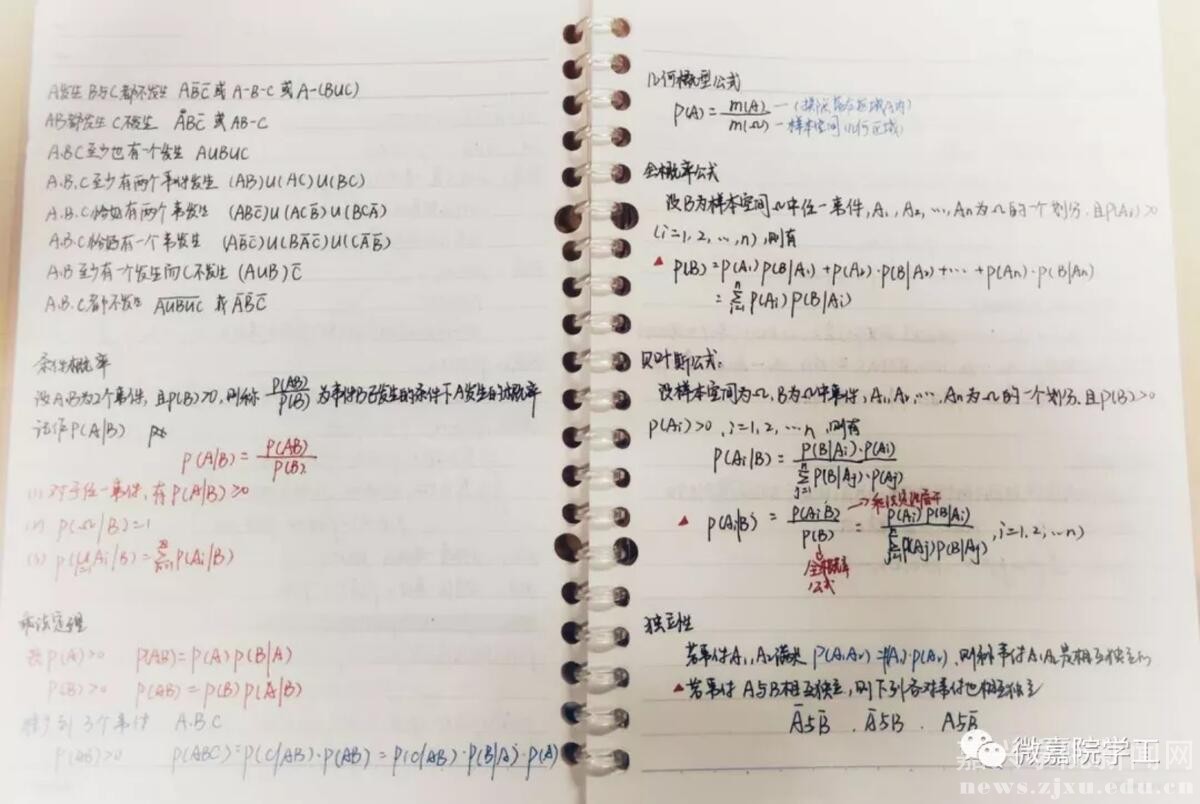 A发生B与C都不发生 AB̅C̅或A-B-C或A-(BUC)
AB都发生C不发生 ABC̅或AB-C
A.B.C至少也有一个发生 AUBUC
A.B.C至少有两个事件发生 (AB)U(AC)U(BC)
A.B.C恰好有两个事发生 (ABC̅)U(ACB̅)U(BCA̅)
A.B.C恰好有一个事发生 (AB̅C̅)U(BA̅C̅)U(CA̅B̅)
A.B至少有一个发生而C不发生 (AUB)C̅
A.B.C都不发生 A̅U̅B̅U̅C̅ 或A̅B̅C̅
条件概率
设A.B为2个事件,且P(B)>0,则称 P(AB)/P(B) 为事件B已发生的条件下A发生的概率
记作P(A|B)
P(A|B)=P(AB)/P(B)
(1)对于任一事件,有P(A|B)≥0
(2) P(Ω|B)=1
(3) P(∪Ai|B)=∑P(Ai|B)
乘法定理
P(A)>0 P(AB)=P(A)P(B|A)
P(B)>0 P(AB)=P(B)P(A|B)
推广到3个事件 A.B.C
P(AB)>0 P(ABC)=P(C|AB)·P(AB)=P(C|AB)·P(B|A)·P(A)
几何概型公式
P(A)=m(A)/m(Ω)
—样本空间(几何区域)
全概率公式
设B为样本空间Ω中任一事件,A₁,A₂,…,An为Ω的一个划分,且P(Ai)>0
(i=1,2,…,n),则有
▲ P(B)=P(A₁)P(B|A₁)+P(A₂)·P(B|A₂)+…+P(An)·P(B|An)
=∑ⁿᵢ₌₁P(Ai)P(B|Ai)
贝叶斯公式:
设样本空间为Ω,B为Ω中事件,A₁,A₂,…,An为Ω的一个划分.且P(B)>0
P(Ai)>0,i=1,2,…n,则有
P(Ai|B)=P(B|Ai)·P(Ai)/∑ⁿⱼ₌₁P(B|Aj)·P(Aj)
▲ P(Ai|B)=P(AiB)/P(B)=P(Ai)P(B|Ai)/∑ⁿⱼ₌₁P(Aj)P(B|Aj),i=1,2,…n)
→乘法定理展开
↓
全概率
公式
独立性
若事件A₁,A₂满足 P(A₁A₂)=P(A₁)·P(A₂),则称事件A₁A₂是相互独立的
▲若事件A与B相互独立,则下列各对事件也相互独立
A̅与B̅ . A̅与B . A与B̅
微嘉院学工
news.zjxu.edu.cn